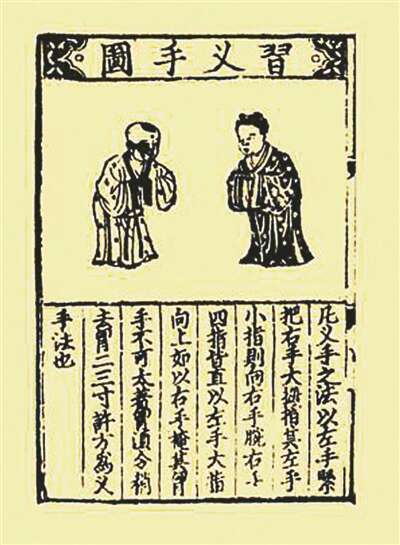 習叉手圖
凡叉手之法以左手緊
把右手大拇指其左手
小指則向右手腕右手
四指皆直以左手大指
向上如以右手掩其胷
手不可太着胷須令稍
去胷二三寸許方為叉
手法也